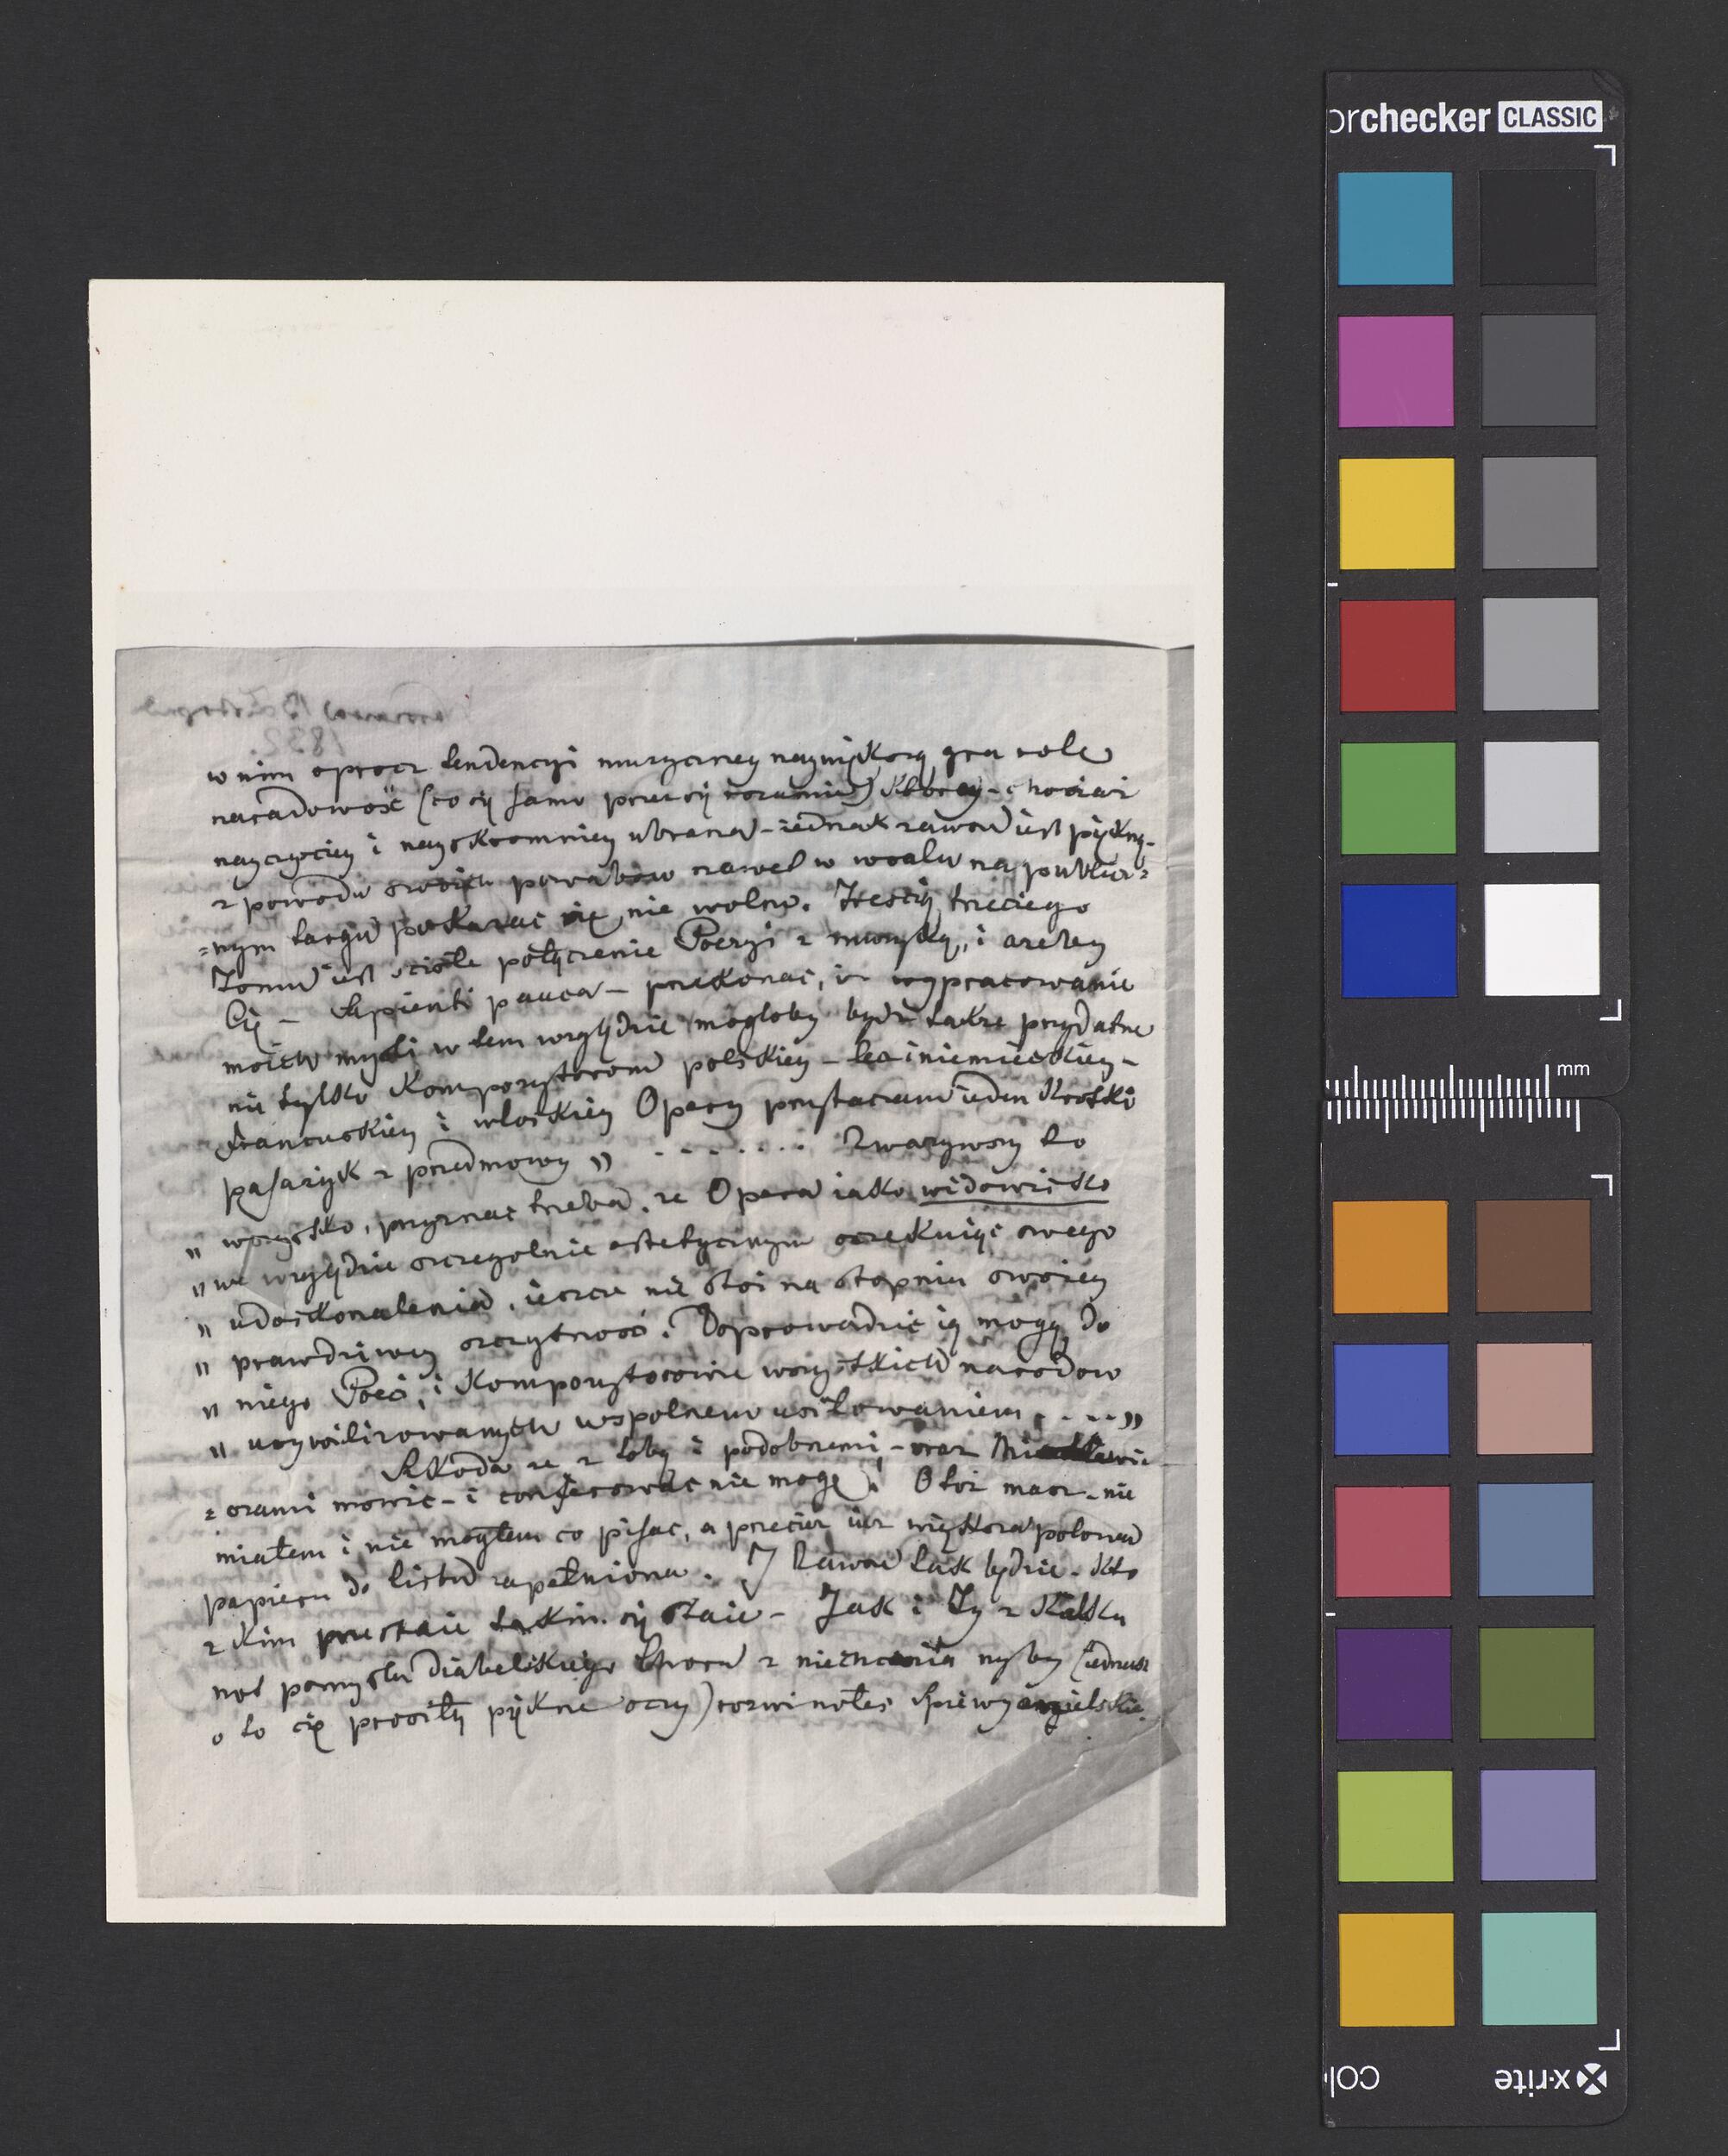 orchecker CLASSIC
1832.
w nim oprocz tendencyi muzyczney naywiększą gra role
narodowość (co się samo przez się rozumie) która - chociaż
nayczęściey i nayskromniey ubrana - iednak zawsze iest piękną -
z powodu swoich powabow nawet w woalu na publicz=
=nym targu pokazać się nie wolno. Treścią trzeciego
Tomu iest ścisłe połączenie Poezyi z muzyką, i ażeby
Cię - Sapienti pauca - przekonać, iż wypracowanie
moich myśli w tem względzie mogłoby bydź także przydatne
nie tylko Kompozytorom polskiey - lecz i niemieckiey -
francuskiey i włoskiey Opery przytaczam ieden krotki
pasażyk z przedmowy „ ........ Zważywszy to
„ wszystko, przyznać trzeba, że Opera iako widowisko
„ we względzie szczegolnie estetycznym oczekuiąc swego
„ udoskonalenia, ieszcze nie stoi na stopniu swoiey
„ prawdziwey szczytności. Doprowadzić ią mogą do
„ niego Poeci, i Kompozytorowie wszystkich narodow
„ ucywilizowanych wspolnem usiłowaniem . . . . „
Szkoda że z tobą i podobnemi, - oraz Mickiewi=
=czami mowić - i conferować nie mogę! Otoż masz - nie
miałem i nie mogłem co pisać, a przecież iuż większa połowa
papieru do listu zapełniona. I zawsze tak będzie - kto
z kim przestaie takim się staie - Jak i Ty z kilku
not pomysłu diabelskiego Chora z nieznania niby (iednak
o to cię prosiły piękne oczy) rozwinołeś śpiewy anielskie.
mm
x·rite
col